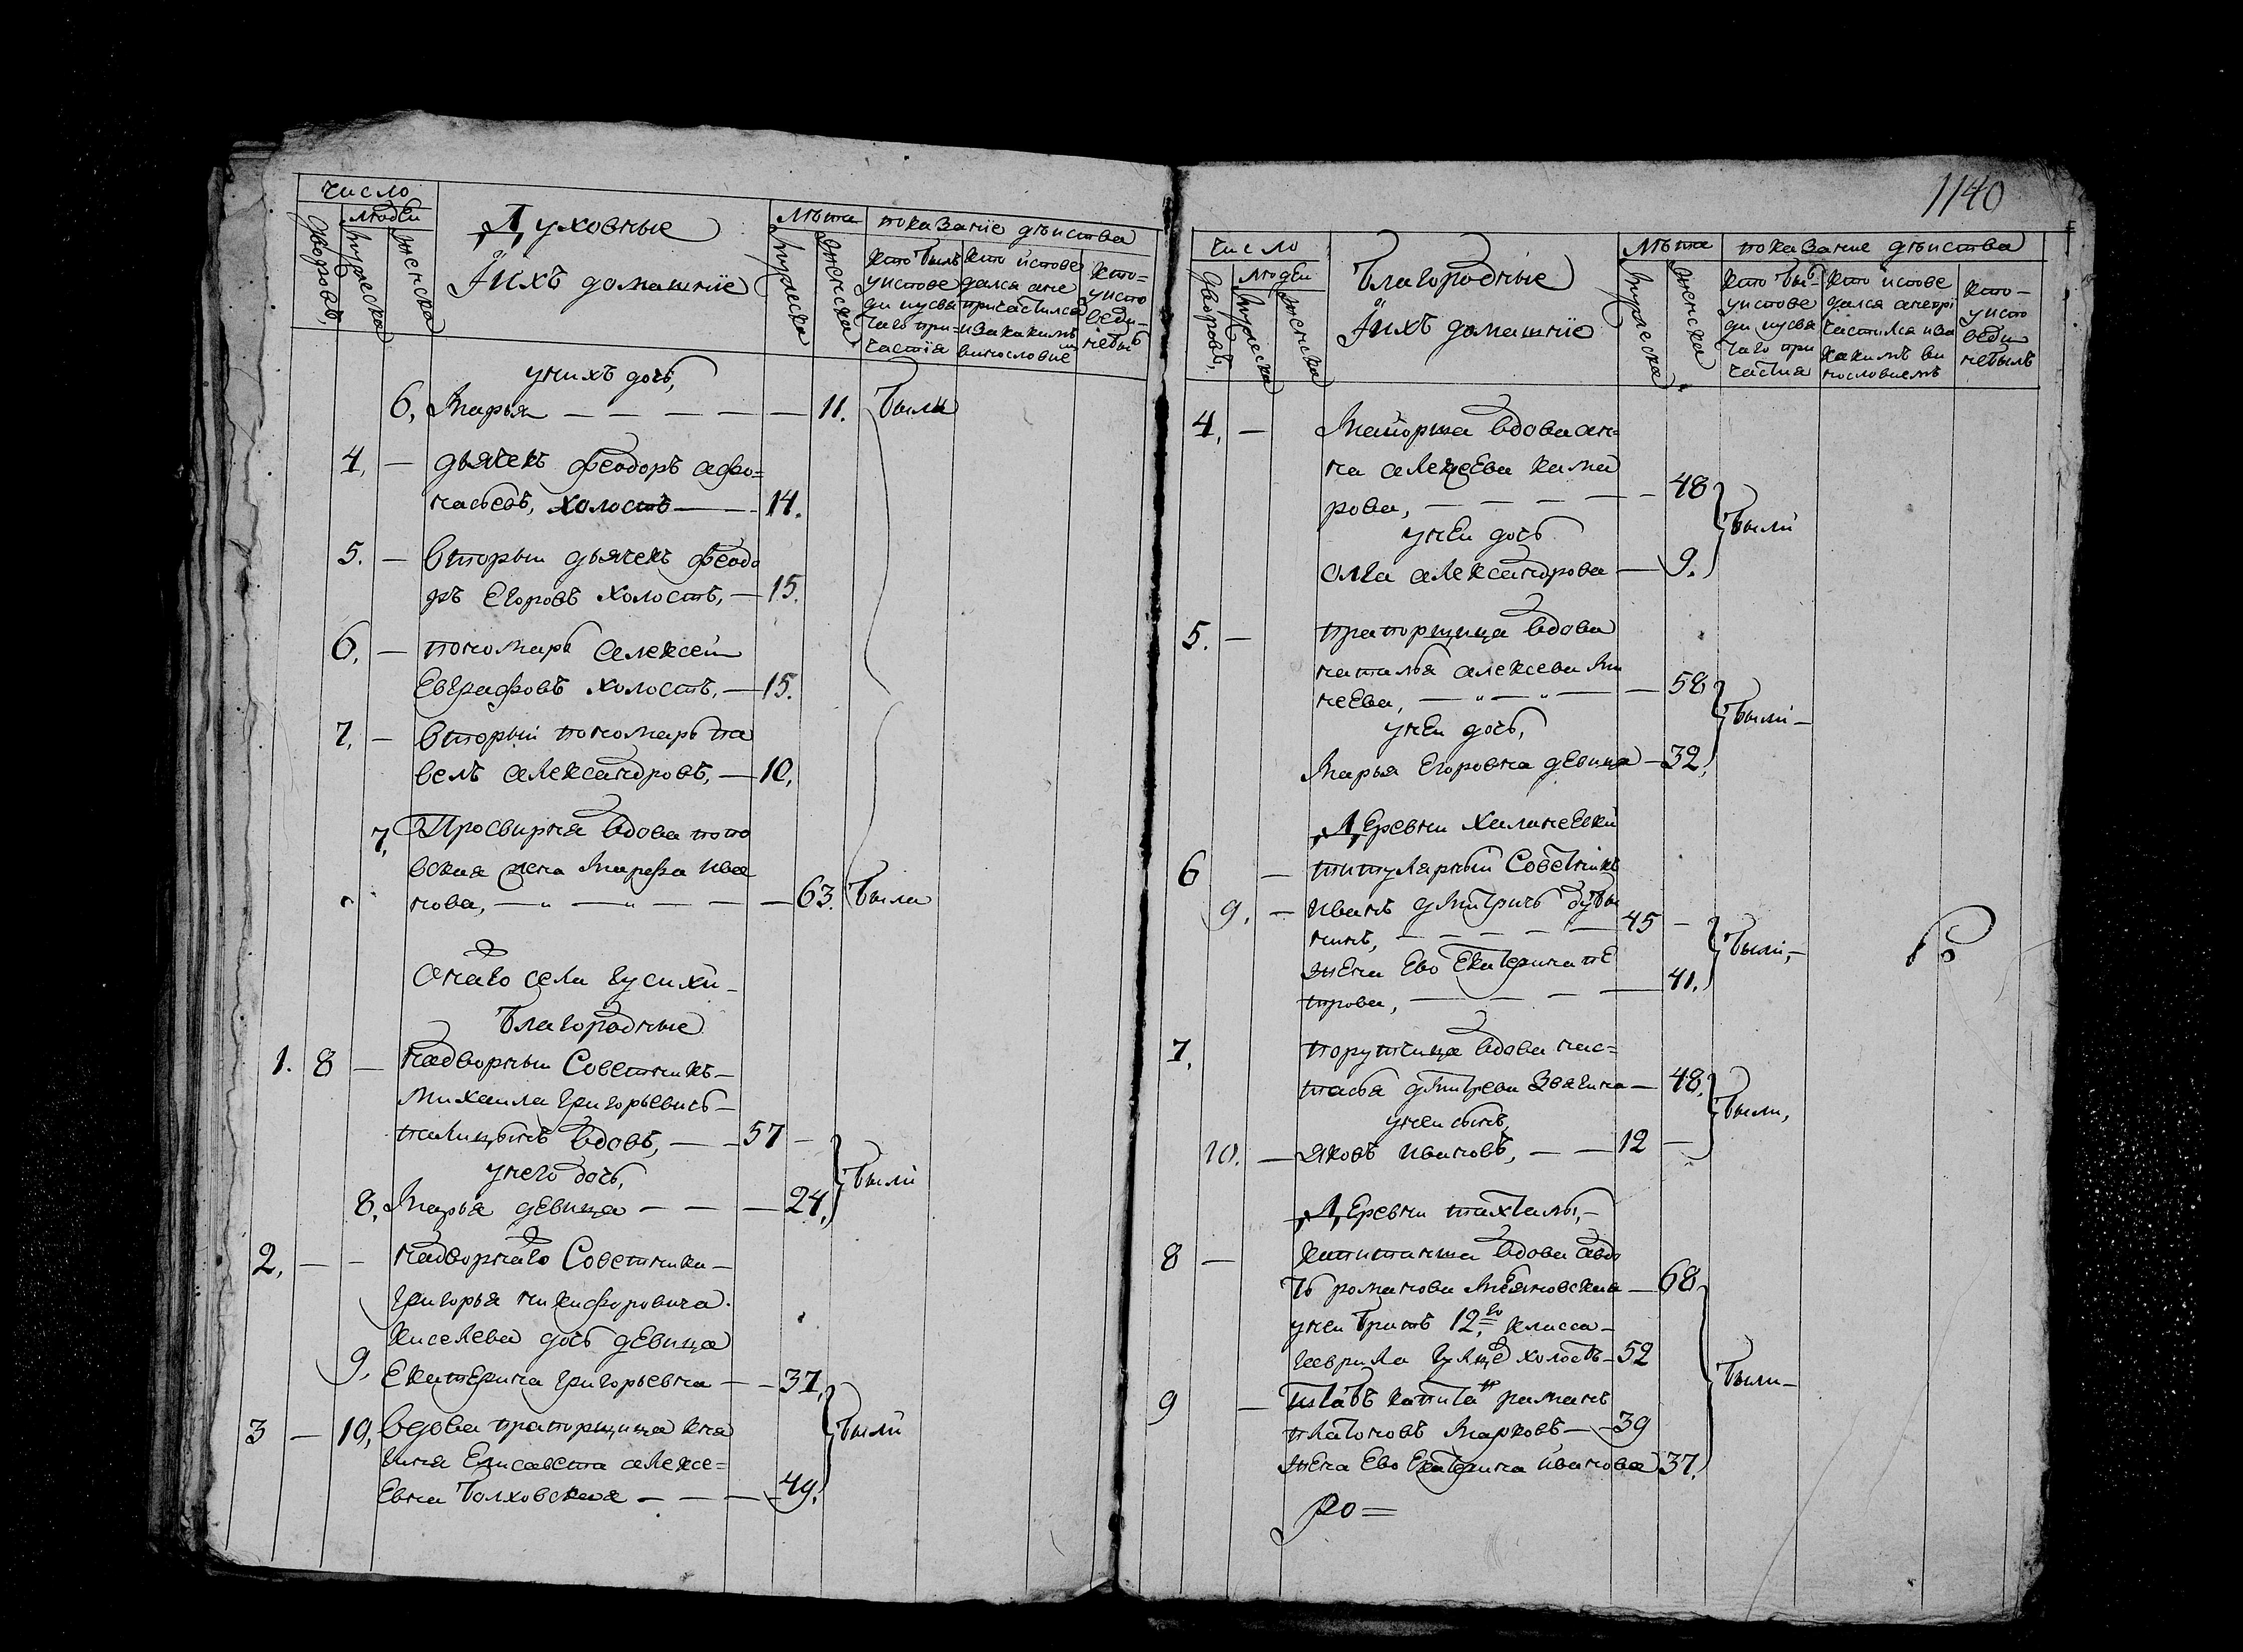 число
людеи
дворовъ,
мужеска
женска
Духовные
Ихъ домашнїе
Лѣта
мужеска
женска
показанїе дѣиства
кто былъ
у истове
ди и у свя
таго при-
частїя
кто истове
дался а не
причастился
и за какимъ
винословие
кто-
у испо
веди
небылъ
унихъ дочь,
6, Марья — — — — — 11. были
4, — дьячекъ феодоръ афо=
насьевъ, холостъ — — 14.
5. — вторыи дьячекъ феодо
ръ Егоровъ холостъ, — 15.
6, — пономарь алексеи
Евграфовъ холостъ, — 15.
7, — вторыи пономарь па
велъ александровъ, — 10,
7, Просвирня вдова попо
вская жена Марфа ива
нова, — „ — „ — — — 63. была
Онаго села гусихи
благородные
1. 8 — надворныи Советникъ —
Михаила григорьевичь —
палицынъ вдовъ, — — 57 —
унего дочь,
были
8, Марья девица — — — 24,
2, — — надворнаго Советника —
григорья никифоровича
киселева дочь девица
9, Екатерина григорьевна — — 37,
3 — 10, вдова прапорщица кня
были
гиня Елисавета алексе=
Евна болховская — — — 49.
1140
число
людеи
дворовъ,
мужеска
женска
благородные
Ихъ домашнїе
Лѣта
мужеска
женска
показание дѣиства
кто бы-
у истове
ди и у свя
таго при
частия
кто истове
дался анепрї
частился иза
какимъ ви
нословиемъ
кто-
у испо
веди
небылъ
4, — Маиорша вдова ан=
на алексеева
рова, — — — — 48
были
унеи дочь
Олга александрова — 9.
5. — прапорщица вдова
наталья алексева Ми
неева, — „ — „ — — 58
были —
унеи дочь,
Марья Егоровна девица — 32,
Деревни
6 — титулярныи Советникъ
9, — иванъ дмитричь
нинъ, — — — — — 45 —
были, —
жена Ево Екатерина пе
трова, — — — — 41.
7, порутчица вдова нас=
тасья дмитрева Звягина — 48,
были,
унеи сынъ,
10. — яковъ ивановъ, — — 12 —
Деревни
8 — капитанша вдова авдо
тья романова — 68
унеи братъ 12го класса —
гаврила холостъ — 52
были —
9 — штабъ капитан романъ
платоновъ Марковъ — — 39
жена Ево Екатерина иванова 37,
ро =